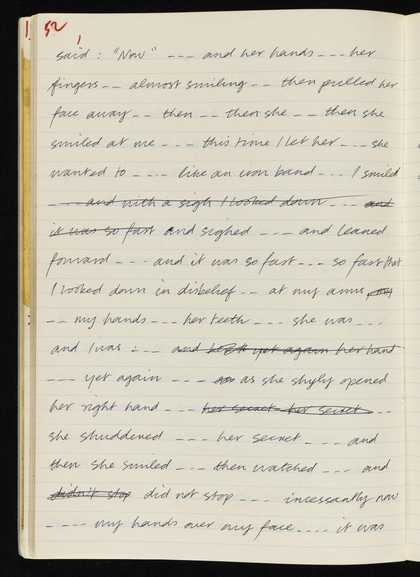 1 52
said: "Now" --- and her hands --- her
fingers -- almost smiling -- then pulled her
face away -- then -- then she -- then she
smiled at me --- this time I let her --- she
wanted to ---- like an iron band --- I smiled
---- and with a sigh I looked down --- and
it was so fast and sighed --- and leaned
forward ---- and it was so fast --- so fast that
I looked down in disbelief -- at my arms
-- my hands --- her teeth --- she was ---
and I was --- and yet again her hand
---- yet again ---- as she shyly opened
her right hand --- her secret her secret --
she shuddered ---- her secret ---- and
then she smiled --- then watched --- and
didn't stop did not stop ---- incessantly now
----- my hands over my face ---- it was